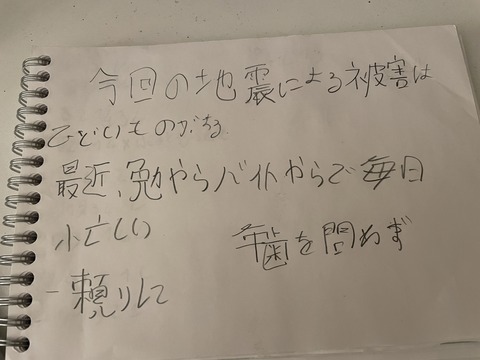 今回の地震による被害は
ひどいものがある
最近、勉やらバイトからで毎日
忙しい
年齢を問わず
一頼りして